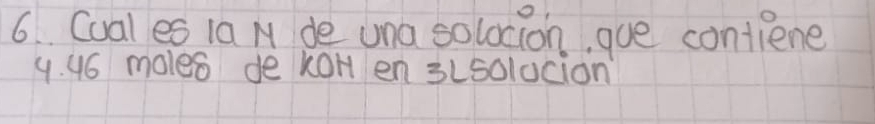 6. Cual es la M de una solocion, que contiene
4.46 moles de KOH en 3L solucion